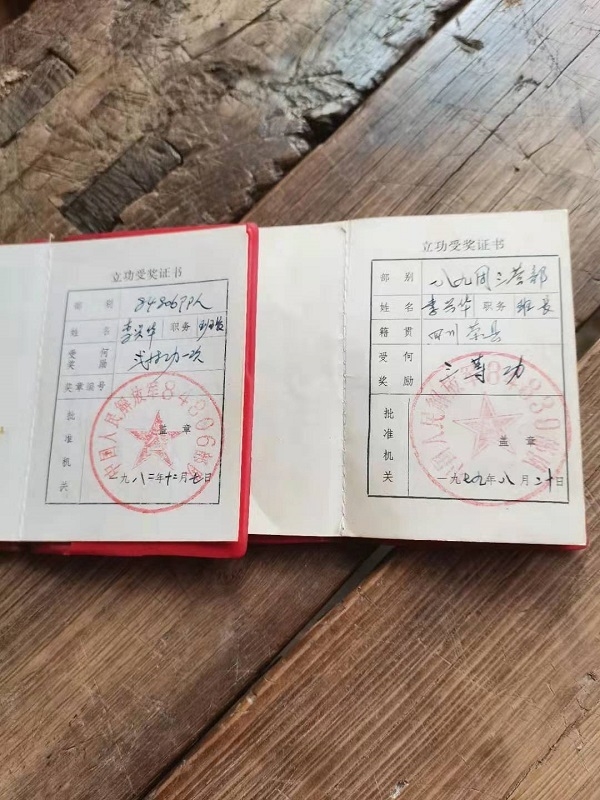 立功受奖证书
部别
姓名 李兴华 职务
受何奖励
奖章编号
批准机关
中国人民解放军84806部队
盖章
一九八二年十二月七日
立功受奖证书
部别 八九团三营部
姓名 李兴华 职务 班长
籍贯 四川荣县
受何奖励 三等功
批准机关
盖章
一九七九年八月二十日